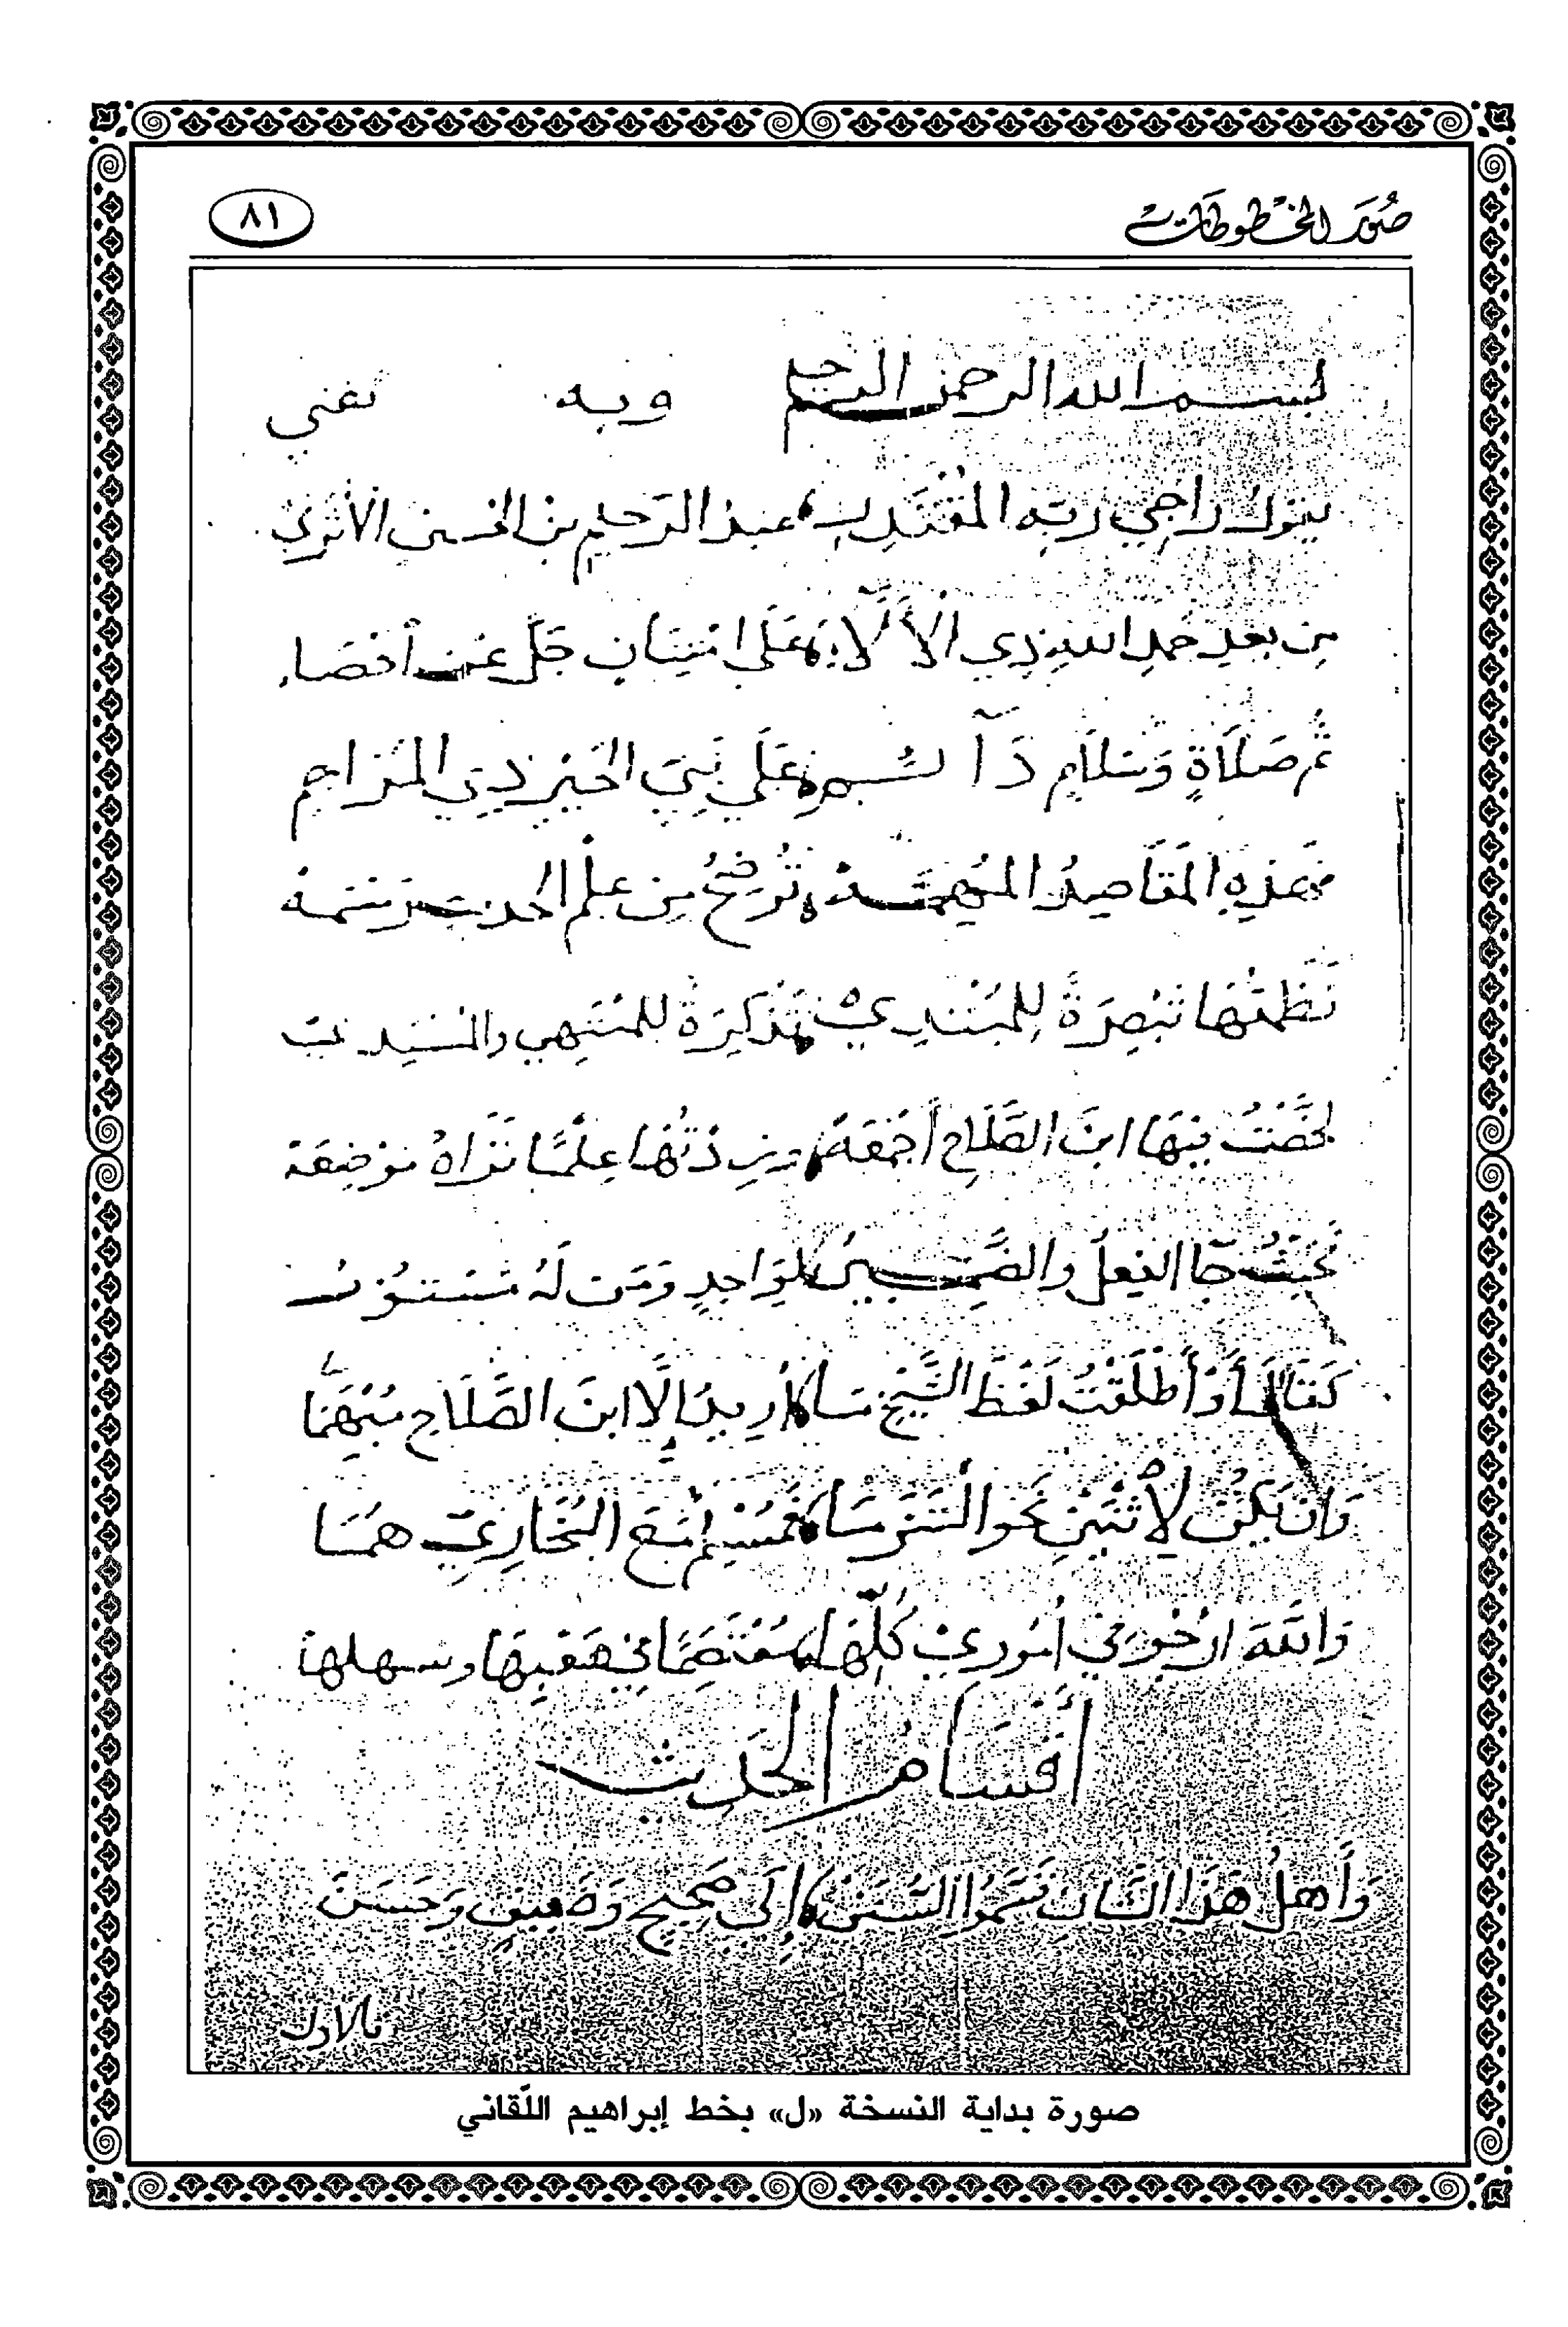 صُوَر المخطوطات
٨١
بسم الله الرحمن الرحيم وبه ثقتي
يقول راجي ربه المقتدر عبد الرحيم بن الحسين الأثري
من بعد حمد الله ذي الآلاء على امتنان جل عن إحصاء
ثم صلاة وسلام دائم على نبي الخير ذي المراحم
فهذه المقاصد المهمة توضح من علم الحديث رسمه
نظمتها تبصرة للمبتدي تذكرة للمنتهي والمسند
لخصت فيها ابن الصلاح أجمعه وزدتها علما تراه موضعه
فحيث جا الفعل والضمير لواحد ومن له مستور
كقال أو أطلقت لفظ الشيخ ما أريد إلا ابن الصلاح مبهما
وإن يكن لاثنين نحو التزما فمسلم مع البخاري هما
والله أرجو في أموري كلها معتصما في صعبها وسهلها
أقسام الحديث
وأهل هذا الشأن قسموا السنن إلى صحيح وضعيف وحسن
فالاول
صورة بداية النسخة «ل» بخط إبراهيم اللّقاني